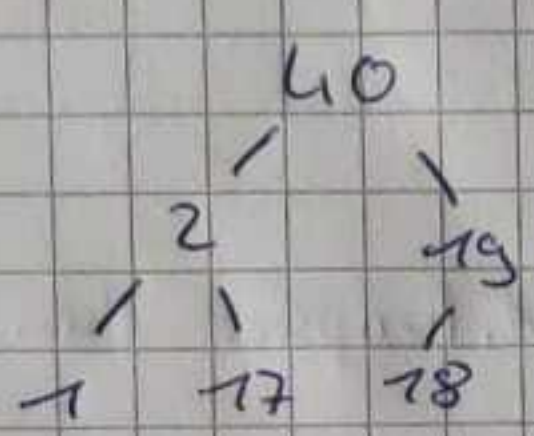 40
2 19
1 17 18